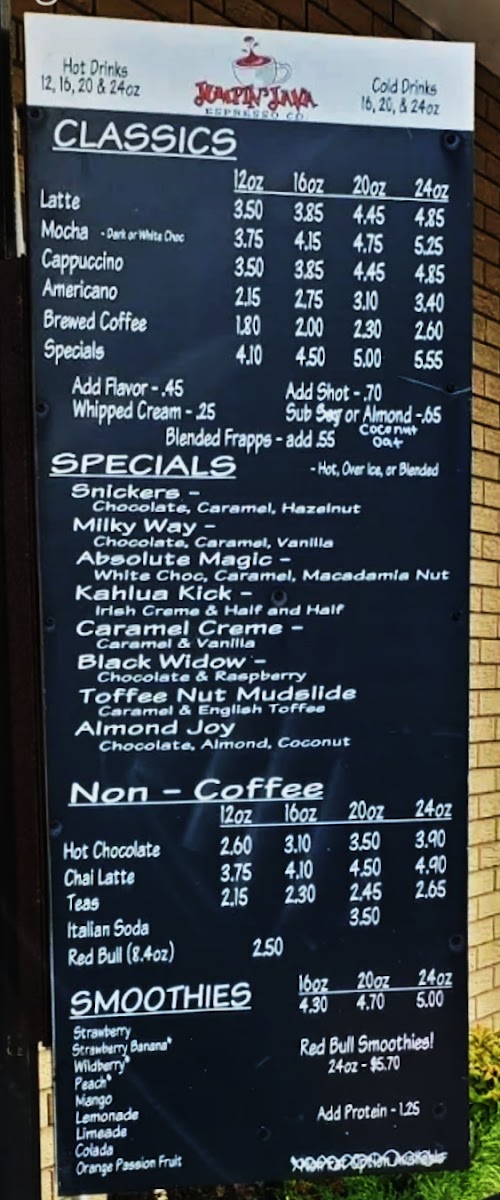 Hot Drinks
12, 16, 20 & 24oz
JUMPIN' JAVA
ESPRESSO CO.
Cold Drinks
16, 20, & 24oz
CLASSICS
12oz 16oz 20oz 24oz
Latte 3.50 3.85 4.45 4.85
Mocha - Dark or White Choc 3.75 4.15 4.75 5.25
Cappuccino 3.50 3.85 4.45 4.85
Americano 2.15 2.75 3.10 3.40
Brewed Coffee 1.80 2.00 2.30 2.60
Specials 4.10 4.50 5.00 5.55
Add Flavor - .45 Add Shot - .70
Whipped Cream - .25 Sub Soy or Almond - .65
Coconut
Oat
Blended Frapps - add .55
SPECIALS - Hot, Over Ice, or Blended
Snickers -
Chocolate, Caramel, Hazelnut
Milky Way -
Chocolate, Caramel, Vanilla
Absolute Magic -
White Choc, Caramel, Macadamia Nut
Kahlua Kick -
Irish Creme & Half and Half
Caramel Creme -
Caramel & Vanilla
Black Widow -
Chocolate & Raspberry
Toffee Nut Mudslide
Caramel & English Toffee
Almond Joy
Chocolate, Almond, Coconut
Non - Coffee
12oz 16oz 20oz 24oz
Hot Chocolate 2.60 3.10 3.50 3.90
Chai Latte 3.75 4.10 4.50 4.90
Teas 2.15 2.30 2.45 2.65
Italian Soda 3.50
Red Bull (8.4oz) 2.50
SMOOTHIES
16oz 20oz 24oz
4.30 4.70 5.00
Strawberry
Strawberry Banana*
Wildberry*
Peach*
Mango
Lemonade
Limeade
Colada
Orange Passion Fruit
Red Bull Smoothies!
24oz - $5.70
Add Protein - 1.25
Option Available